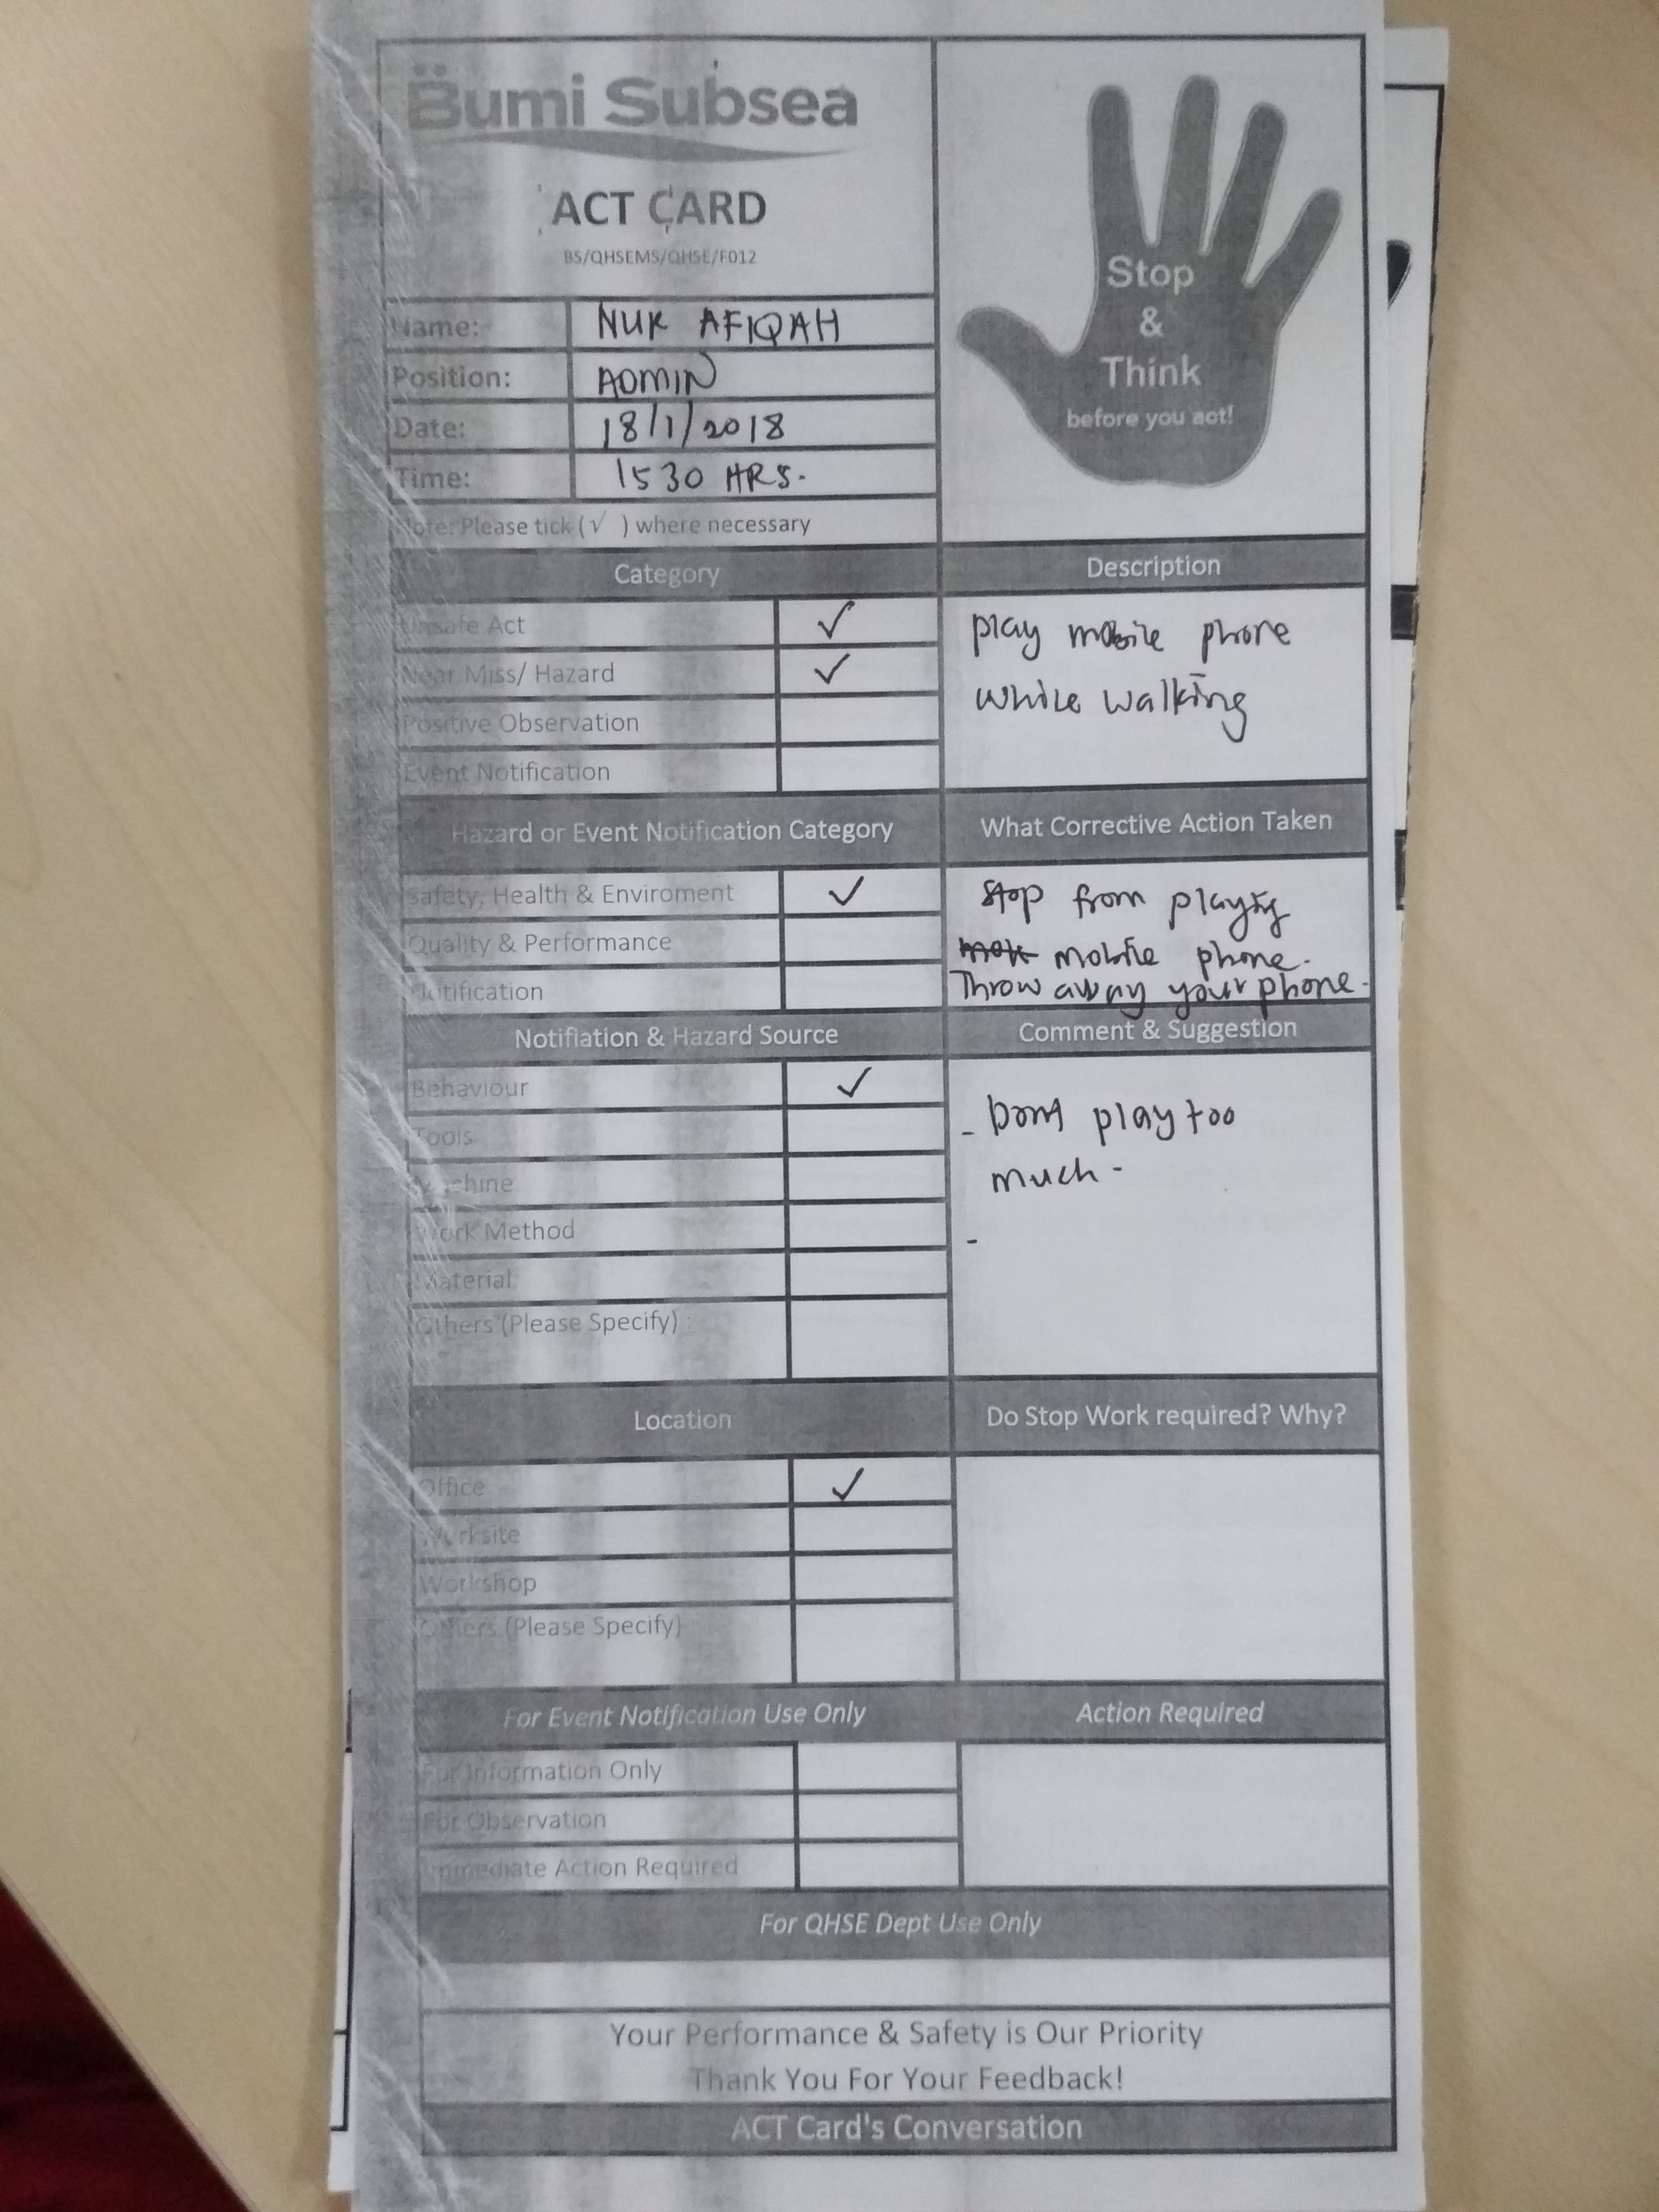 Bumi Subsea
ACT CARD
BS/QHSEMS/QHSE/F012
Stop
&
Think
before you act!
Name: NUR AFIQAH
Position: ADMIN
Date: 18/1/2018
Time: 1530 HRS.
Note: Please tick (√ ) where necessary
Category
Unsafe Act ✓
Near Miss/ Hazard ✓
Positive Observation
Event Notification
Description
play mobile phone
while walking
Hazard or Event Notification Category
Safety, Health & Enviroment ✓
Quality & Performance
Notification
What Corrective Action Taken
Stop from playing
mobile phone.
Throw away your phone.
Notifiation & Hazard Source
Behaviour ✓
Tools
Machine
Work Method
Material
Others (Please Specify) :
Comment & Suggestion
- Dont play too
much -
-
Location
Office ✓
Worksite
Workshop
Others (Please Specify)
Do Stop Work required? Why?
For Event Notification Use Only
For Information Only
For Observation
Immediate Action Required
Action Required
For QHSE Dept Use Only
Your Performance & Safety is Our Priority
Thank You For Your Feedback!
ACT Card's Conversation